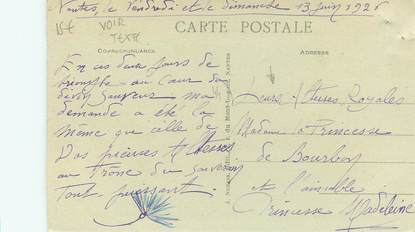 Nantes, le Vendredi et le dimanche 13 juin 1926
15€ VOIR
TEXTE
CARTE POSTALE
CORRESPONDANCE
ADRESSE
En ces deux jours de
triomphe au Cœur du
divin Sauveur ma
demande a été la
même que celle de
Vos pieuses Altesses
au Trône du Souverain
Tout puissant.
Leurs Altesses Royales
Madame la Princesse
de Bourbon
et l'aimable
Princesse Madeleine